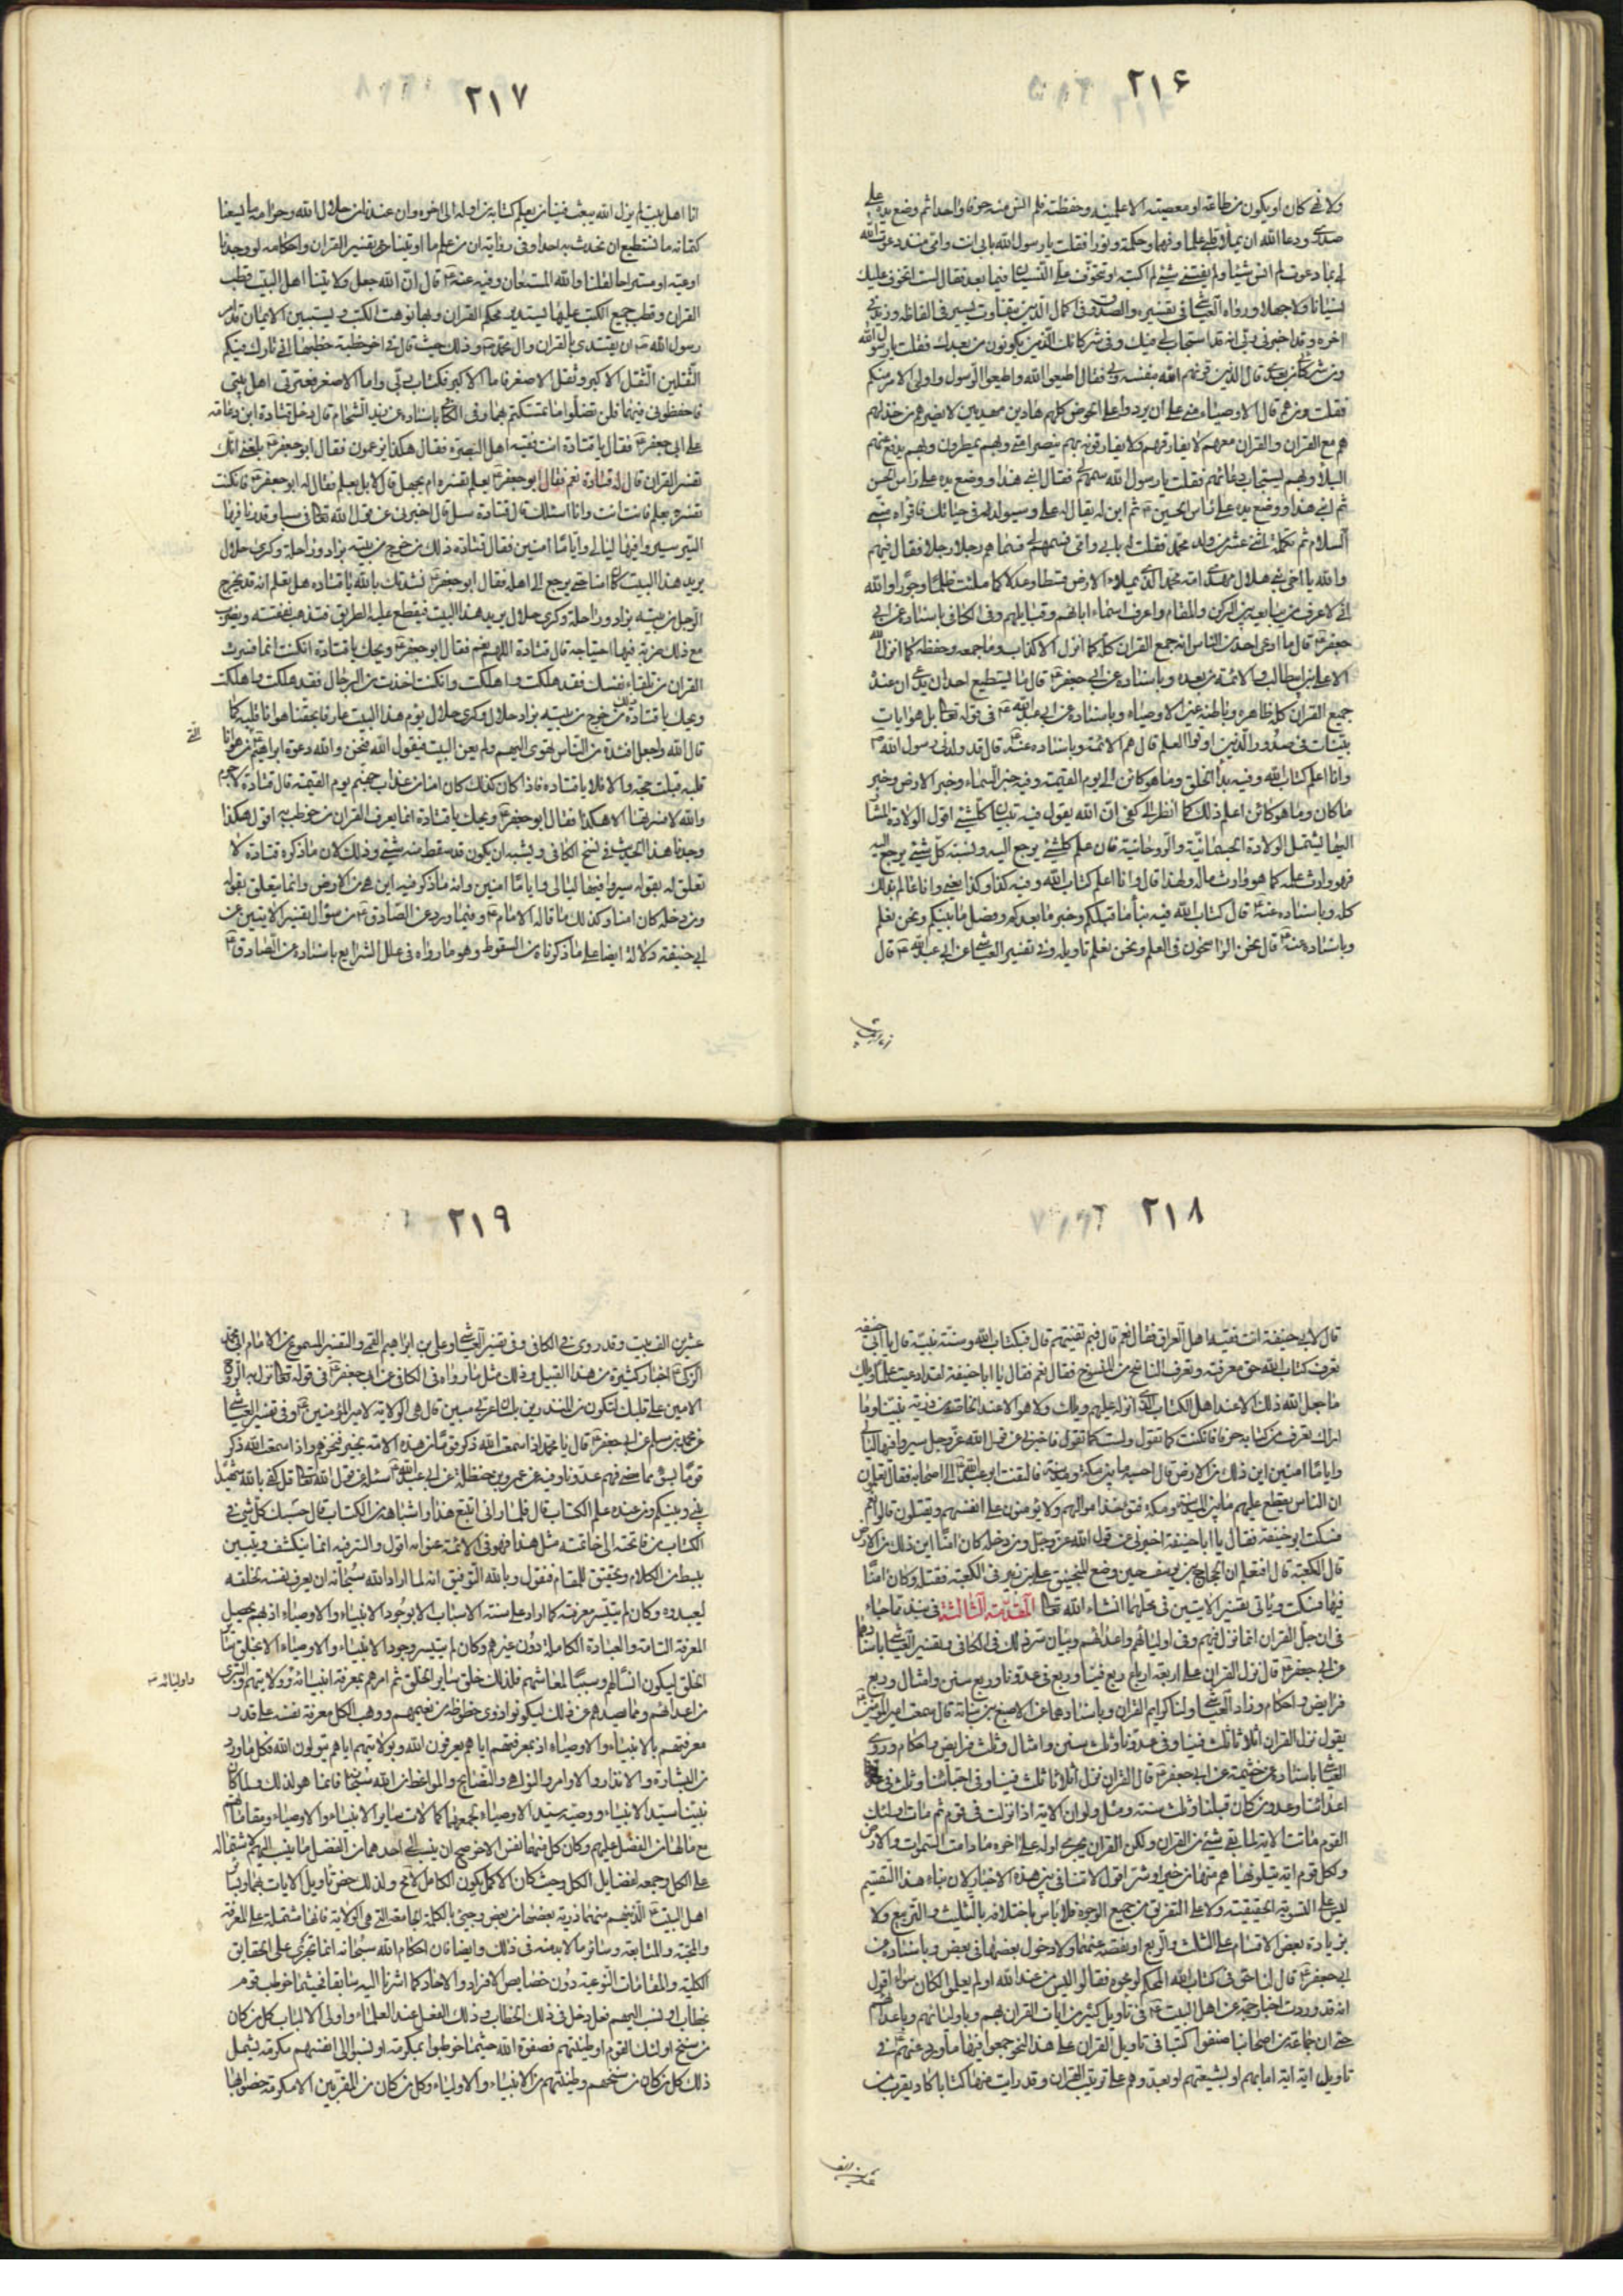 ٢١۶
ولا نهى كان او يكون من طاعته او معصيته الا علمنيه وحفظته فلم انس منه حرفا واحدا ثم وضع يده على
صدري ودعا الله ان يملأ قلبي علما وفهما وحكمة ونورا فقلت يا رسول الله بابي انت وامي منذ دعوت الله
لي بما دعوت لم انس شيئا ولم يفتني شئ لم اكتبه او تتخوف على النسيان فيما بعد فقال لست اتخوف عليك
نسيانا ولا جهلا ورواه العياشي في تفسيره والصدوق في اكمال الدين بتفاوت يسير في الفاظه وزيد في
اخره وقد اخبرني ربي انه قد استجاب لي فيك وفي شركائك الذين يكونون من بعدك فقلت يا رسول الله
ومن شركائي من بعدي قال الذين قرنهم الله بنفسه وبي فقال اطيعوا الله واطيعوا الرسول واولى الامر منكم
فقلت ومن هم قال الاوصياء مني الى ان يردوا على الحوض كلهم هادين مهديين لا يضرهم من خذلهم
هم مع القران والقران معهم لا يفارقهم ولا يفارقونه بهم ينصر امتي وبهم يمطرون وبهم يدفع عنهم
البلاء وبهم يستجاب دعائهم فقلت يا رسول الله سمهم لي فقال ابني هذا ووضع يده على راس الحسن
ثم ابني هذا ووضع يده على راس الحسين ثم ابن له يقال له علي وسيولد في حياتك فاقرأه مني
السلام ثم تكملة اثنى عشر من ولد محمد فقلت له بابي وامي فسمهم لي فسماهم رجلا رجلا فقال فيهم
والله يا اخي بني هلال مهدي امة محمد الذي يملاء الارض قسطا وعدلا كما ملئت ظلما وجورا والله
اني لاعرف من يبايعه بين الركن والمقام واعرف اسماء ابائهم وقبايلهم وفي الكافي باسناده عن ابي
جعفر قال ما ادعى احد من الناس انه جمع القران كله كما انزل الا كذاب وما جمعه وحفظه كما انزل الله
الا علي بن ابيطالب والائمة من بعده وباسناده عن ابي جعفر قال ما يستطيع احد ان يدعي ان عنده
جميع القران كله ظاهره وباطنه غير الاوصياء وباسناده عن ابي عبد الله في قوله تعالى بل هو ايات
بينات في صدور الذين اوتوا العلم قال هم الائمة وباسناده عنه قال قد ولدني رسول الله
وانا اعلم كتاب الله وفيه بدأ الخلق وما هو كائن الى يوم القيمة وفيه خبر السماء وخبر الارض وخبر
ما كان وما هو كائن اعلم ذلك كما انظر الى كفي ان الله يقول فيه تبيان كل شئ اقول الولادة المشار
اليها يشتمل الولادة الجسمانية والروحانية فان علم كل شئ يرجع اليه ونسبة كل شئ يرجع اليه
فهو وارث علمه كما هو وارث ماله ولهذا قال وانا اعلم كتاب الله وفيه كذا وكذا يعني وانا عالم بذلك
كله وباسناده عنه قال كتاب الله فيه نبأ ما قبلكم وخبر ما بعدكم وفصل ما بينكم ونحن نعلم
وباسناده عنه قال نحن الراسخون في العلم ونحن نعلم تاويله وفي تفسير العياشي عن ابي عبد الله قال
٢١٧
انا اهل بيت لم يزل الله يبعث فينا من يعلم كتابه من اوله الى اخره وان عندنا من حلال الله وحرامه ما يسعنا
كتمانه ما نستطيع ان نحدث به احدا وفي رواية ان من علم ما اوتينا تفسير القران واحكامه لو وجدنا
اوعية او مستراحا لقلنا والله المستعان وفيه عنه قال ان الله جعل ولايتنا اهل البيت قطب
القران وقطب جميع الكتب عليها يستدير محكم القران وبها نوهت الكتب ويستبين الايمان وقد امر
رسول الله ان يقتدى بالقران وال محمد وذلك حيث قال في اخر خطبة خطبها اني تارك فيكم
الثقلين الثقل الاكبر وثقل الاصغر فاما الاكبر فكتاب ربي واما الاصغر فعترتي اهل بيتي
فاحفظوني فيهما فلن تضلوا ما تمسكتم بهما وفي الكافي باسناده عن زيد الشحام قال دخل قتادة ابن دعامة
على ابي جعفر فقال يا قتادة انت فقيه اهل البصرة فقال هكذا يزعمون فقال ابو جعفر بلغني انك
تفسر القران قال له قتادة نعم فقال ابو جعفر بعلم تفسره ام بجهل قال لا بل بعلم فقال له ابو جعفر فان كنت
تفسره بعلم فانت انت وانا اسئلك قال قتادة سل قال اخبرني عن قول الله تعالى في سبا وقدرنا فيها
السير سيروا فيها ليالي واياما امنين فقال قتادة ذلك من خرج من بيته بزاد وراحلة وكرى حلال
يريد هذا البيت كان امنا حتى يرجع الى اهله فقال ابو جعفر نشدتك بالله يا قتاده هل تعلم انه قد يخرج
الرجل من بيته بزاد وراحلة وكرى حلال يريد هذا البيت فيقطع عليه الطريق فتذهب نفقته ويضرب
مع ذلك ضربة فيها اجتياحه قال قتادة اللهم نعم فقال ابو جعفر ويحك يا قتادة ان كنت انما فسرت
القران من تلقاء نفسك فقد هلكت واهلكت وان كنت اخذت من الرجال فقد هلكت واهلكت
ويحك يا قتادة ذلك من خرج من بيته بزاد حلال وكرى حلال يؤم هذا البيت عارفا بحقنا هوانا قلبه كما
قال الله واجعل افئدة من الناس تهوى اليهم ولم يعن البيت فيقول اليه فنحن والله دعوة ابراهيم من هوانا
قلبه قبلت حجته والا فلا يا قتاده فاذا كان كذلك كان امنا من عذاب جهنم يوم القيمة قال قتادة لا جرم
والله لا فسرتها الا هكذا فقال ابو جعفر ويحك يا قتادة انما يعرف القران من خوطب به اقول هكذا
وجدنا هذا الحديث في نسخ الكافي ويشبه ان يكون قد سقط منه شئ وذلك لان ما ذكره قتادة لا
تعلق له بقوله سيروا فيها ليالى واياما امنين وانه ما ذكر فيه اين هي من الارض وانما يتعلق بقوله
ومن دخله كان امنا وكذلك ما قاله الامام وفيما ورد عن الصادق من سؤال تفسير الايتين عن
ابي حنيفة دلالة ايضا على ما ذكرناه من السقوط وهو ما رواه في علل الشرايع باسناده عن الصادق
٢١٨
قال لابي حنيفة انت فقيه اهل العراق فقال نعم قال فبم تفتيهم قال بكتاب الله وسنة نبيه قال يا ابا حنيفه
تعرف كتاب الله حق معرفته وتعرف الناسخ من المنسوخ فقال نعم فقال يا ابا حنيفة لقد ادعيت علما ويلك
ما جعل الله ذلك الا عند اهل الكتاب الذي انزله عليهم ويلك ولا هو الا عند الخاص من ذرية نبينا وما
اراك تعرف من كتابه حرفا فان كنت كما تقول ولست كما تقول فاخبرني عن قول الله عز وجل سيروا فيها ليالي
واياما امنين اين ذلك من الارض قال احسبه ما بين مكة ومدينة فالتفت ابو عبد الله الى اصحابه فقال تعلمون
ان الناس يقطع عليهم ما بين المدينة ومكة فتؤخذ اموالهم ولا يؤمنون على انفسهم ويقتلون قالوا نعم
فسكت ابو حنيفة فقال يا ابا حنيفة اخبرني عن قول الله عز وجل ومن دخله كان امنا اين ذلك من الارض
قال الكعبة قال افتعلم ان الحجاج بن يوسف حين وضع المنجنيق على ابن زبير في الكعبة فقتله وكان امنا
فيها فسكت وياتى تفسير الايتين في محلهما انشاء الله تعالى المقدمة الثالثة في نبذ مما جاء
في ان جل القران انما نزل فيهم وفي اوليائهم واعدائهم وبيان سر ذلك في الكافي وتفسير العياشي باسنادهما
عن ابي جعفر قال نزل القران على اربعة ارباع ربع فينا وربع في عدونا وربع سنن وامثال وربع
فرايض واحكام وزاد العياشي ولنا كرايم القران وباسنادهما عن الاصبغ بن نباتة قال سمعت امير المؤمنين
يقول نزل القران اثلاثا ثلث فينا وفي عدونا وثلث سنن وامثال وثلث فرايض واحكام وروى
العياشي باسناده عن خثيمة عن ابي جعفر قال القران نزل اثلاثا ثلث فينا وفي احبائنا وثلث في
اعدائنا وعدو من كان قبلنا وثلث سنة ومثل ولو ان الاية اذا نزلت في قوم ثم مات اولئك
القوم ماتت الاية لما بقى شئ من القران ولكن القران يجري اوله على اخره ما دامت السموات والارض
ولكل قوم اية يتلونها هم منها من خير او شر اقول لا تنافي بين هذه الاخبار لان بناء هذا التقسيم
ليس على التسوية الحقيقية ولا على التفريق من جميع الوجوه فلا باس باختلافه بالتثليث والتربيع ولا
بزيادة بعض الاقسام على الثلث والربع او نقصه عنهما ولا دخول بعضها في بعض وباسناده عن
ابي جعفر قال لنا حق في كتاب الله المحكم لو محوه فقالوا ليس من عند الله او لم يعلموا لكان سواء اقول
انه قد وردت اخبار جمة عن اهل البيت في تاويل كثير من ايات القران بهم وباوليائهم وباعدائهم
حتى ان جماعة من اصحابنا صنفوا كتبا في تاويل القران على هذا النحو جمعوا فيها ما ورد عنهم في
تاويل اية اية اما بهم او بشيعتهم او بعدوهم على ترتيب القران وقد رايت منها كتابا كاد يقرب من
٢١٩
عشرين الف بيت وقد روى في الكافي وفي تفسير العياشي وعلي بن ابراهيم القمي والتفسير المسموع من الامام ابي محمد
الزكي اخبار كثيرة من هذا القبيل وذلك مثل ما رواه في الكافي عن ابي جعفر في قوله تعالى نزل به الروح
الامين على قلبك لتكون من المنذرين بلسان عربي مبين قال هي الولاية لامير المؤمنين وفي تفسير العياشي
عن محمد بن مسلم عن ابي جعفر قال يا محمد اذا سمعت الله ذكر قوما من هذه الامة بخير فنحن هم واذا سمعت الله ذكر
قوما بسوء ممن مضى فهم عدونا وفيه عن عمر بن حنظلة عن ابي عبد الله سئله عن قول الله تعالى قل كفى بالله شهيدا
بيني وبينكم ومن عنده علم الكتاب قال فلما راني اتتبع هذا واشباهه من الكتاب قال حسبك كل شئ في
الكتاب من فاتحته الى خاتمته مثل هذا فهو في الائمة عنوا به اقول والسر فيه انما ينكشف ويتبين
ببسط من الكلام وتحقيق للمقام فنقول وبالله التوفيق انه لما اراد الله سبحانه ان يعرف نفسه لخلقه
ليعبدوه وكان لم يتيسر معرفته كما اراد على سنة الاسباب الا بوجود الانبياء والاوصياء اذ بهم يحصل
المعرفة التامة والعبادة الكاملة دون غيرهم وكان لم يتيسر وجود الانبياء والاوصياء الا بخلق سائر
الخلق ليكون انسا لهم وسببا لمعاشهم فلذلك خلق سائر الخلق ثم امرهم بمعرفة انبيائه وولايتهم والتبري
واوليائه
من اعدائهم ومما يصدهم عن ذلك ليكونوا ذوي حظوظ من نعيمهم ووهب الكل معرفة نفسه على قدر
معرفتهم بالانبياء والاوصياء اذ بمعرفتهم اياهم يعرفون الله وبولايتهم اياهم يتولون الله فكل ما ورد
من البشارة والانذار والاوامر والنواهي والنصايح والمواعظ من الله سبحانه فانما هو لذلك ولما كان
نبينا سيد الانبياء ووصيه سيد الاوصياء لجمعهما كمالات سائر الانبياء والاوصياء ومقاماتهم
مع ما لهما من الفضل عليهم وكان كل منهما نفس الاخر صح ان ينسب الى احدهما من الفضل ما ينسب اليهم لاشتماله
على الكل وجمعه لفضايل الكل وحيث كان الاكمل يكون الكامل لا محالة ولذلك خص تاويل الايات بهما وبسائر
اهل البيت الذين هم منهما ذرية بعضها من بعض وجئ بالكلمة الجامعة التي هي الولاية فانها مشتملة على المعرفة
والمحبة والمتابعة وسائر ما لا بد منه في ذلك وايضا فان احكام الله سبحانه انما تجري على الحقايق
الكلية والمقامات النوعية دون خصايص الافراد والاحاد كما اشرنا اليه سابقا فحيثما خوطب قوم
بخطاب او نسب اليهم فعل دخل في ذلك الخطاب وذلك الفعل عند العلماء واولى الالباب كل من كان
من سنخ اولئك القوم وطينتهم فصفوة الله حيثما خوطبوا بمكرمة او نسبوا الى انفسهم مكرمة يشمل
ذلك كل من كان من سنخهم وطينتهم من الانبياء والاولياء وكل من كان من المقربين الا مكرمة خصوا بها